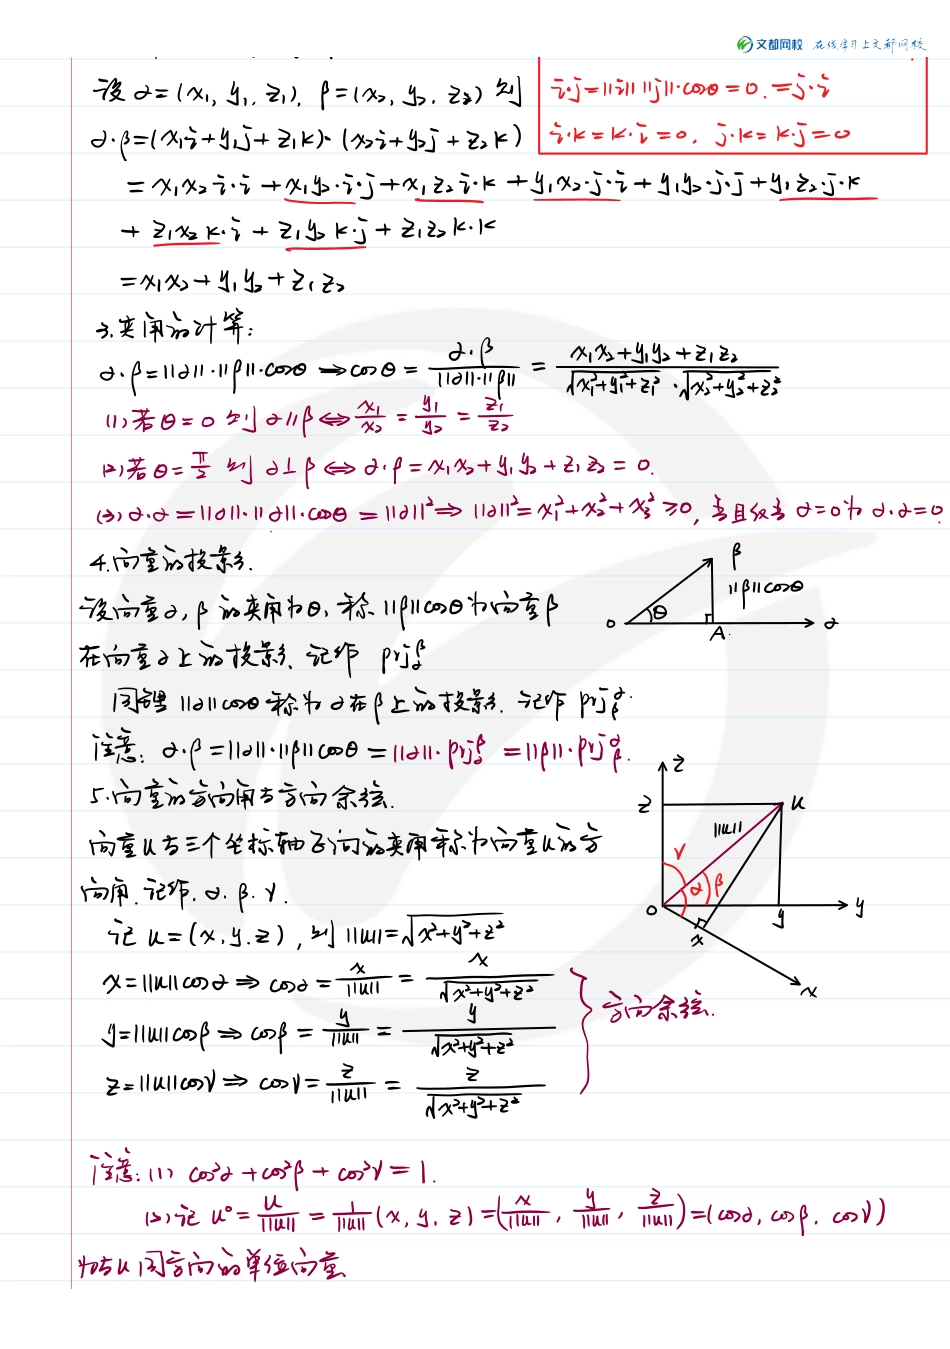 文都网校 在线学习上文都网校
设α=(x₁, y₁, z₁), β=(x₂, y₂, z₂) 则
i·j=||i|| ||j||·cosθ=0.=j·i
i·k=k·i=0, j·k=k·j=0
α·β=(x₁i+y₁j+z₁k)·(x₂i+y₂j+z₂k)
=x₁x₂ i·i+x₁y₂·i·j+x₁z₂ i·k+y₁x₂·j·i+y₁y₂·j·j+y₁z₂·j·k
+z₁x₂ k·i+z₁y₂ k·j+z₁z₂ k·k
=x₁x₂+y₁y₂+z₁z₂
3.夹角的计算:
α·β=||α||·||β||·cosθ ⇒ cosθ = α·β/(||α||·||β||) = (x₁x₂+y₁y₂+z₁z₂)/(√(x₁²+y₁²+z₁²)·√(x₂²+y₂²+z₂²))
(1)若θ=0 则 α∥β ⇔ x₁/x₂ = y₁/y₂ = z₁/z₂
(2)若θ=π/2 则 α⊥β ⇔ α·β=x₁x₂+y₁y₂+z₁z₂=0.
(3)α·α=||α||·||α||·cosθ=||α||² ⇒ ||α||²=x₁²+x₂²+x₃²≥0, 当且仅当α=0时α·α=0
4.向量的投影.
β
||β||cosθ
θ
O A. α
设向量α, β的夹角为θ, 称||β||cosθ为向量β
在向量α上的投影, 记作 prj_α^β
同理||α||cosθ称为α在β上的投影. 记作 prj_β^α.
注意: α·β=||α||·||β||cosθ=||α||·prj_α^β =||β||·prj_β^α.
5.向量的方向角与方向余弦.
z
z u
||u||
γ α β
O y y
x
x
向量u与三个坐标轴正向的夹角称为向量u的方
向角. 记作. α. β. γ.
记 u=(x,y,z), 则||u||=√(x²+y²+z²)
x=||u||cosα ⇒ cosα = x/||u|| = x/√(x²+y²+z²)
y=||u||cosβ ⇒ cosβ = y/||u|| = y/√(x²+y²+z²)
z=||u||cosγ ⇒ cosγ = z/||u|| = z/√(x²+y²+z²)
方向余弦.
注意: (1) cos²α+cos²β+cos²γ=1.
(2)记 u°=u/||u|| = 1/||u||(x, y, z)=(x/||u||, y/||u||, z/||u||)=(cosα, cosβ, cosγ)
为与u同方向的单位向量